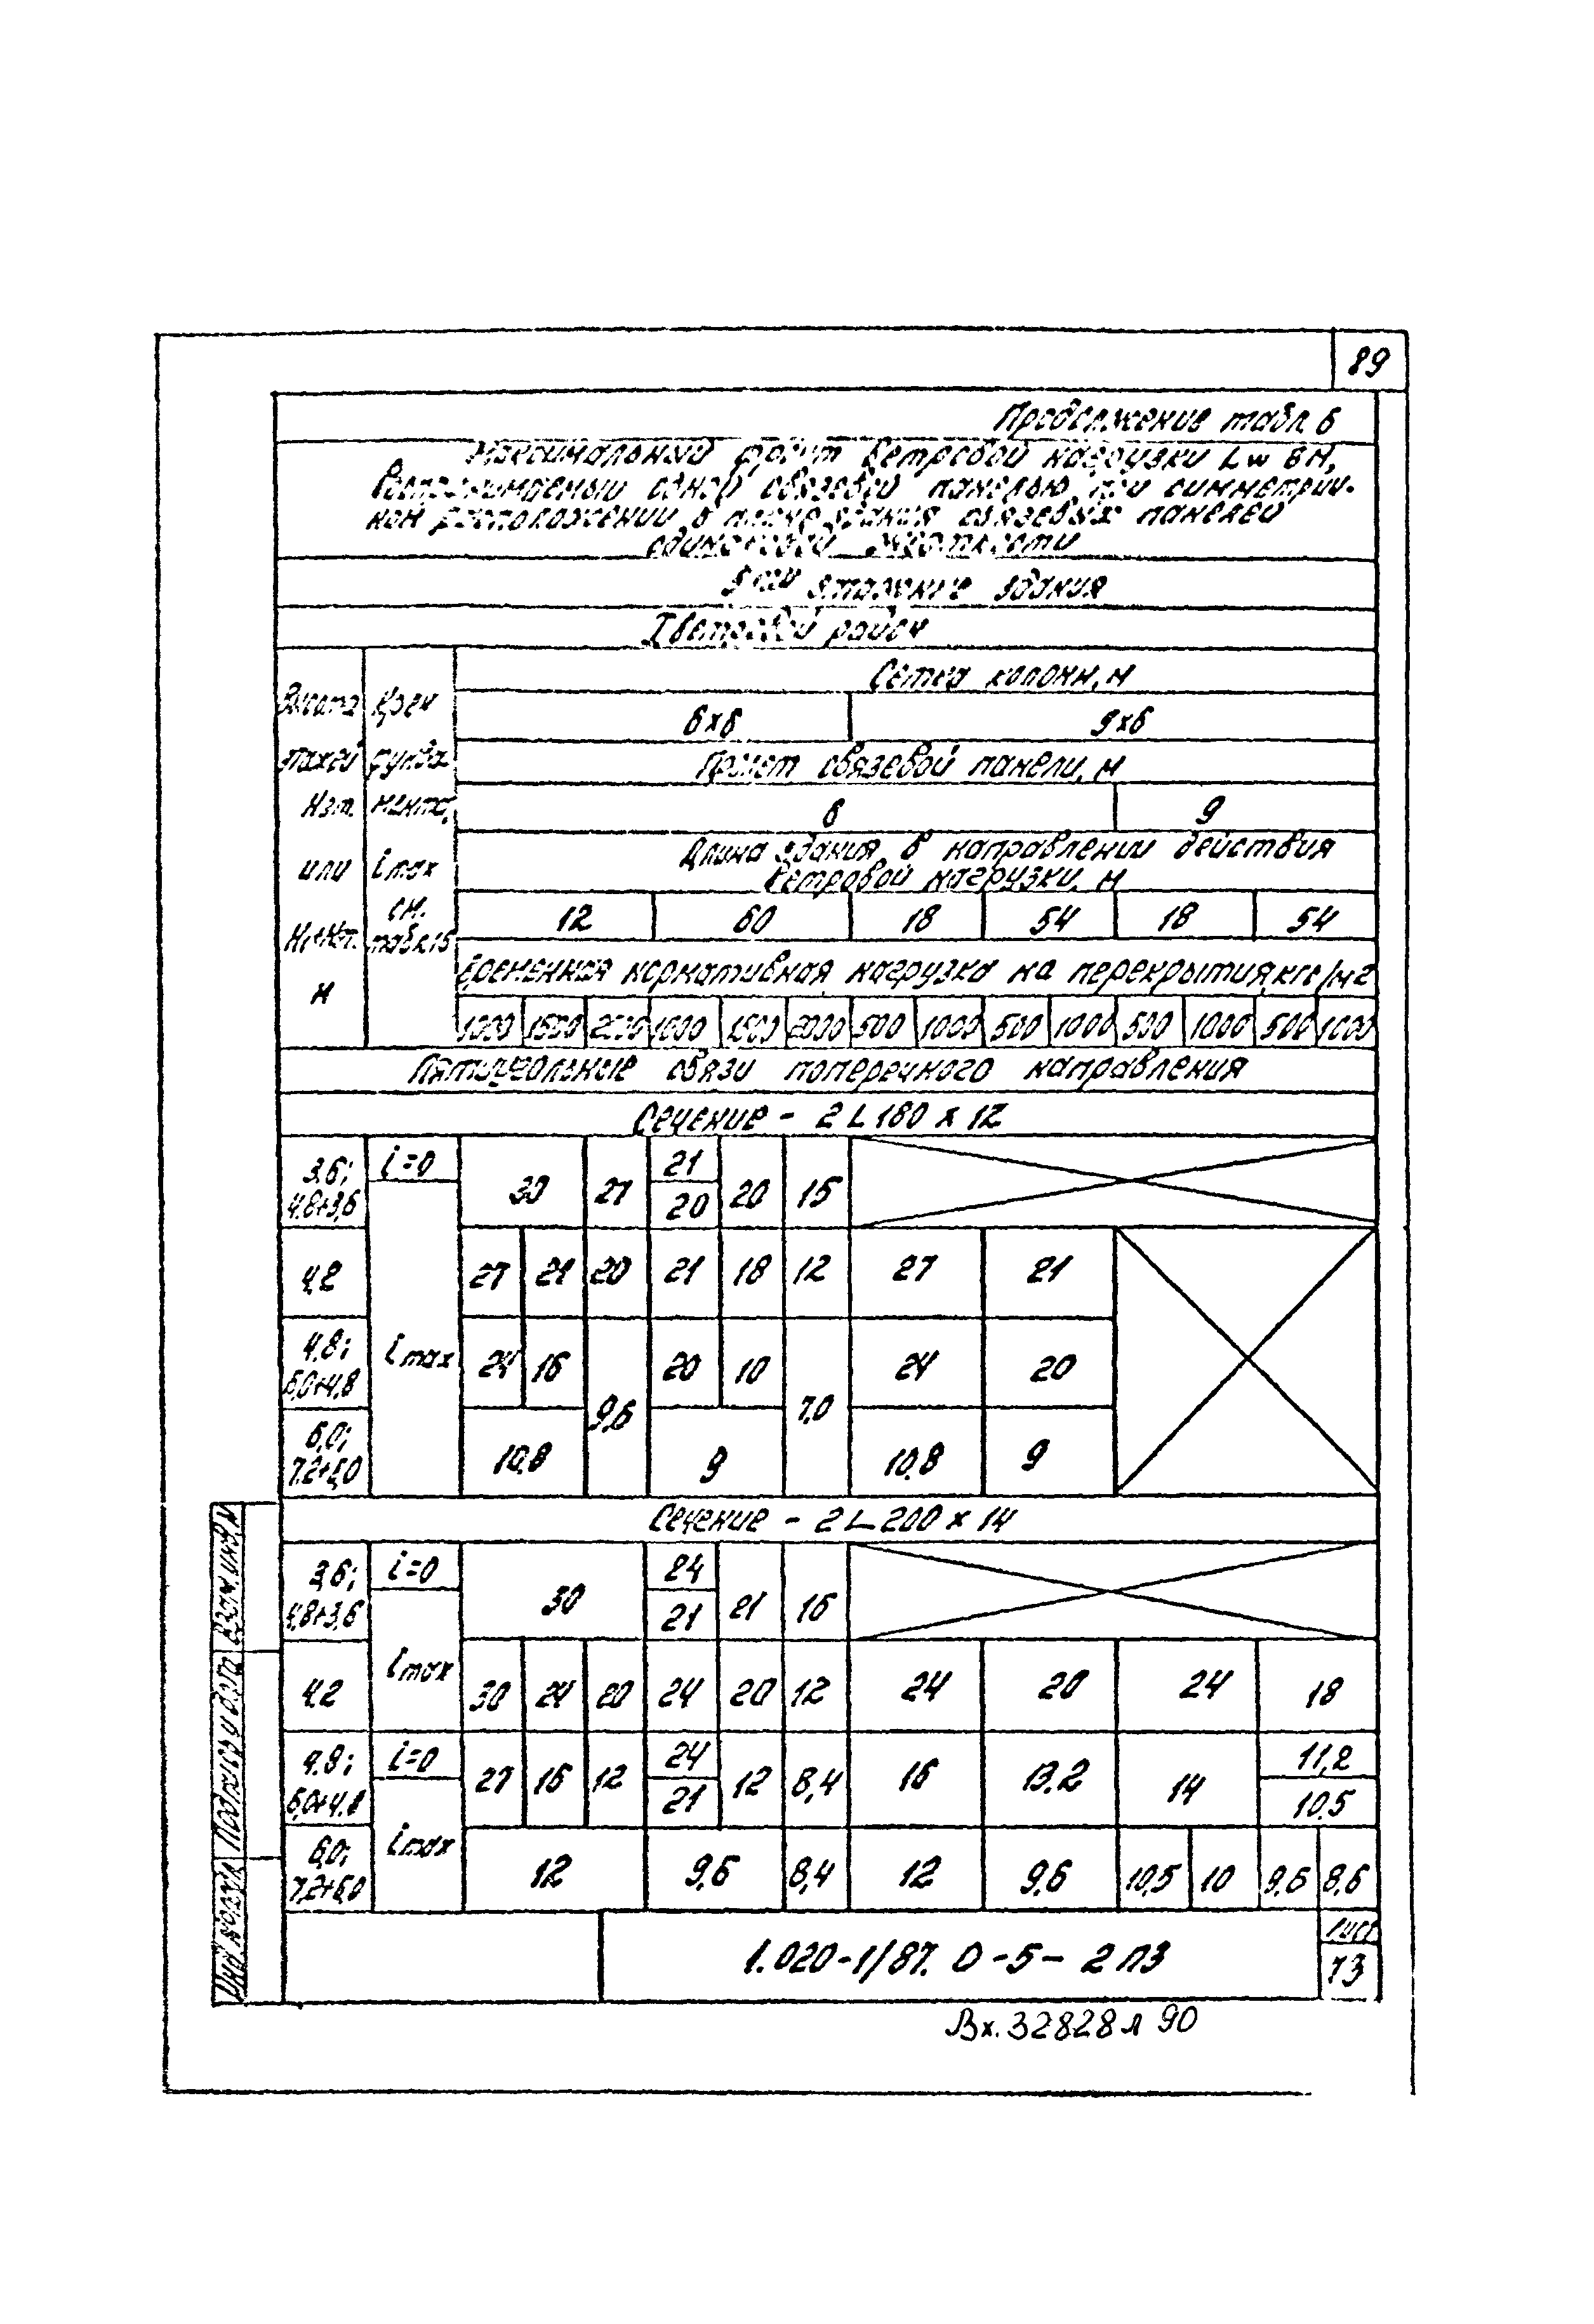 89
Продолжение табл. 6
Максимальный фронт ветровой нагрузки Lw в м,
воспринимаемый одной связевой панелью при симметрич-
ном расположении в плане здания связевых панелей
одинаковой жесткости
этажные здания
I ветровой район
Высота этажей Нэт. или Н1+Нэт. м
Крен фундамента, imax см. табл. 15
Сетка колонн, м
6х6 9х6
Пролет связевой панели, м
6 9
Длина здания в направлении действия
ветровой нагрузки, м
12 60 18 54 18 54
Временная нормативная нагрузка на перекрытия, кгс/м2
1000 1500 2000 1000 1500 2000 500 1000 500 1000 500 1000 500 1000
Пятиугольные связи поперечного направления
Сечение - 2 L 180 х 12
3,6; 4,8+3,6 i=0 30 27 21 20 20 15
4,2 imax 27 21 20 21 18 12 27 21
4,8; 6,0+4,8 24 16 9,6 20 10 7,0 24 20
6,0; 7,2+6,0 10,8 9 10,8 9
Сечение - 2 L 200 х 14
3,6; 4,8+3,6 i=0 30 24 21 21 16
4,2 imax 30 24 20 24 20 12 24 20 24 18
4,8; 6,0+4,8 i=0 27 16 12 24 21 12 8,4 16 13,2 14 11,2 10,5
6,0; 7,2+6,0 imax 12 9,6 8,4 12 9,6 10,5 10 9,6 8,6
Инв. № подл. Подпись и дата Взам. инв. №
1.020-1/87. 0-5-2 ПЗ
Лист
73
Вх. 32828 л 90